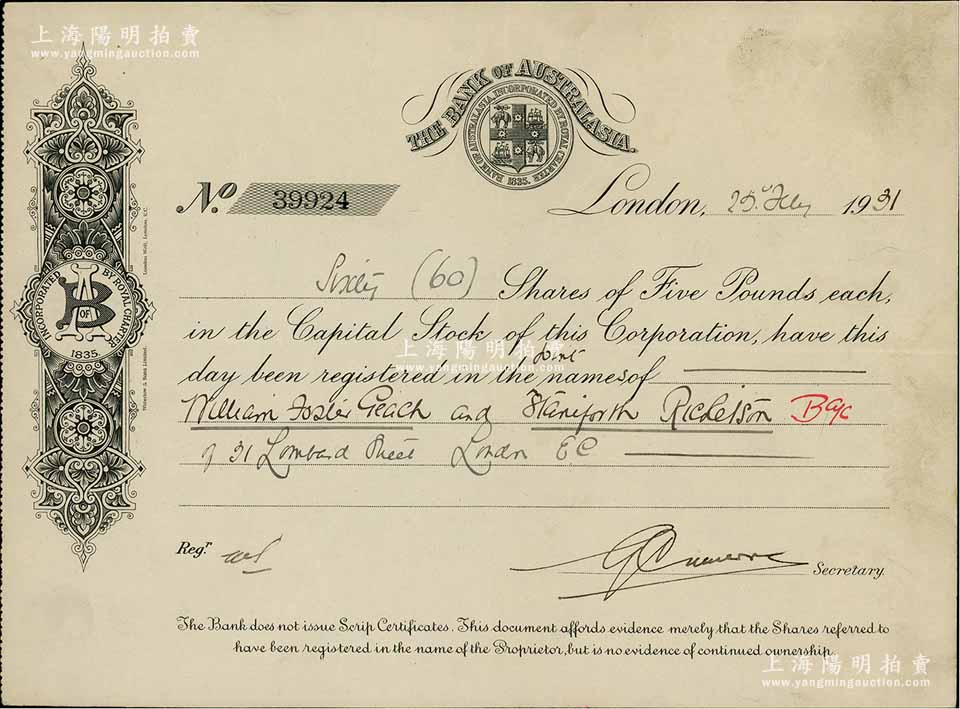 上海陽明拍賣
www.yangmingauction.com
THE BANK OF AUSTRALASIA.
BANK OF AUSTRALASIA, INCORPORATED BY ROYAL CHARTER
1835.
No. 39924
London, 25 1931
Sixty (60) Shares of Five Pounds each,
in the Capital Stock of this Corporation, have this
上海陽明拍賣
www.yangmingauction.com
joint
day been registered in the names of
William Foster Geach and Staniforth Ricketson
of 31 Lombard Street London EC
INCORPORATED BY ROYAL CHARTER
B OF A
1835.
Waterlow & Sons Limited, London Wall, London, E.C.
Regr.
Secretary.
The Bank does not issue Scrip Certificates. This document affords evidence merely that the Shares referred to
have been registered in the name of the Proprietor, but is no evidence of continued ownership.
上海陽明拍賣
www.yangmingauction.com